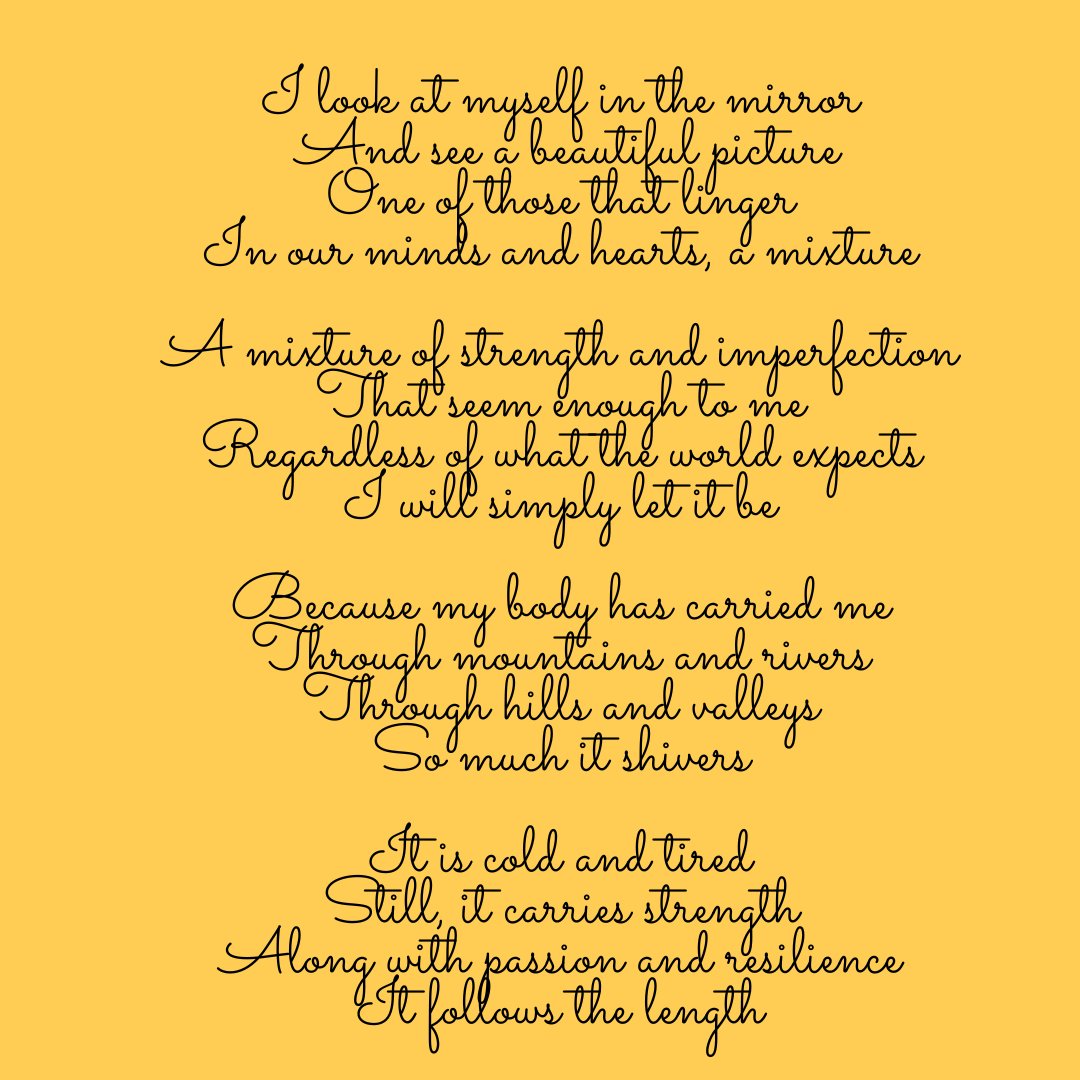 I look at myself in the mirror
And see a beautiful picture
One of those that linger
In our minds and hearts, a mixture
A mixture of strength and imperfection
That seem enough to me
Regardless of what the world expects
I will simply let it be
Because my body has carried me
Through mountains and rivers
Through hills and valleys
So much it shivers
It is cold and tired
Still, it carries strength
Along with passion and resilience
It follows the length